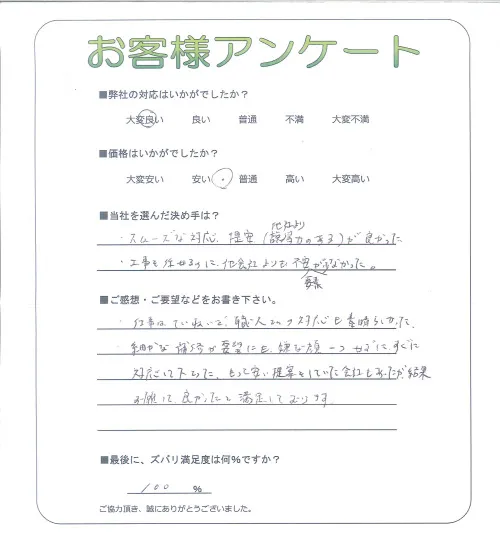 お客様アンケート
■弊社の対応はいかがでしたか?
大変良い 良い 普通 不満 大変不満
■価格はいかがでしたか?
大変安い 安い ・ 普通 高い 大変高い
■当社を選んだ決め手は?
他社より
・スムーズな対応、提案(説得力のある)が良かった
・工事を任せるのに、他会社よりも不安が少なかった。
要素
■ご感想・ご要望などをお書き下さい。
・仕事はていねいで、職人さんの対応も素晴らしかった。
・細かな 要望にも、嫌な顔一つせずに、すぐに
対応して下さった。もっと安い提案をしていた会社もあったが結果
お願いして、良かったと満足しております。
■最後に、ズバリ満足度は何%ですか?
100 %
ご協力頂き、誠にありがとうございました。